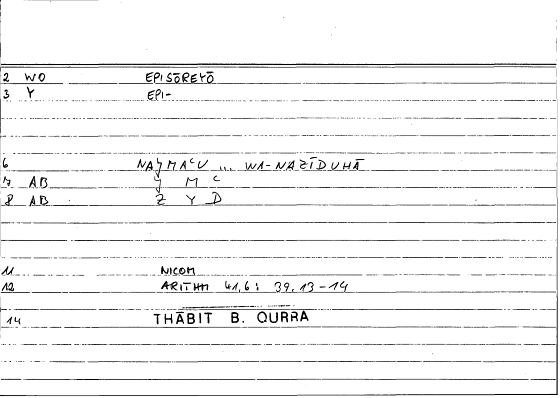 2 WO EPISŌREYŌ
3 Y EPI-
6 NAǦMAʿU ... WA-NAZĪDUHĀ
7 AB Ǧ M ʿ
8 AB Z Y D
11 NICOM
12 ARITHM 41,6 : 39.13-14
14 THĀBIT B. QURRA